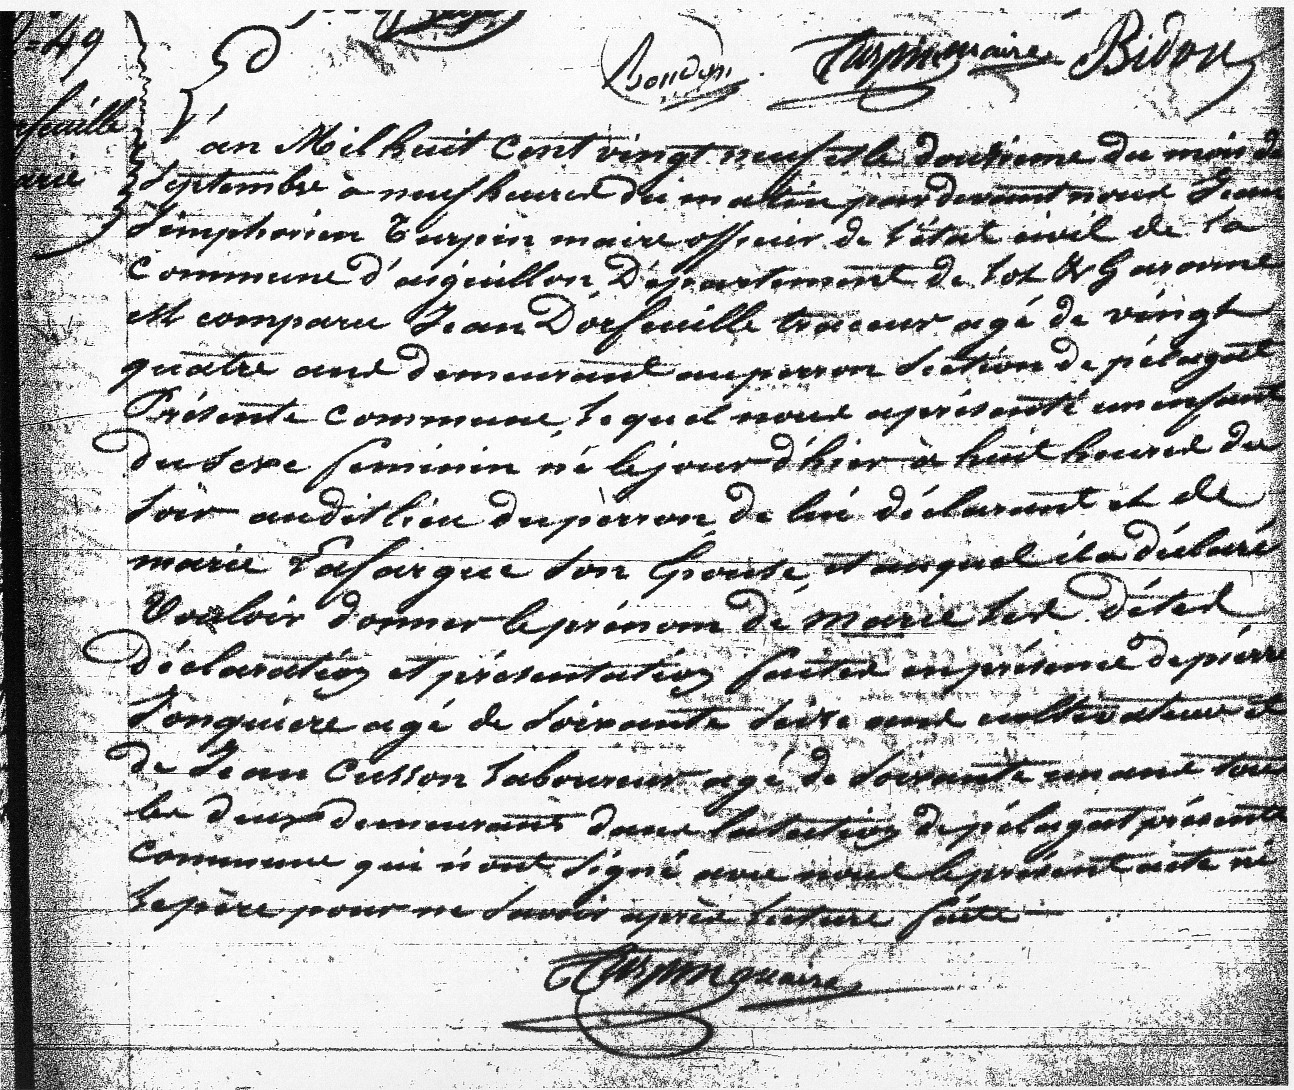 49
Boudon Turpin maire Bidou
L'an Mil huit Cent vingt neuf et le douzieme du mois de
Septembre à neuf heures du matin par devant nous Jean
Simphorien Turpin maire officier de l'état civil de la
Commune d'aiguillon Département de Lot & Garonne
est comparu Jean Dorfeuille traceur agé de vingt
quatre ans demeurant au perron Section de pélagat
Présente Commune, lequel nous a présenté un enfant
du sexe feminin né le jour d'hier à huit heures du
soir audit lieu du perron de lui déclarant et de
marie Lafargue son Epouse, et auquel il a déclaré
Vouloir donner le prénom de marie les dites
déclaration et présentation faites en présence de pierre
agé de soixante seize ans cultivateur et
de Jean Cusson Laboureur agé de soixante un ans tous
les deux demeurants dans la section de pélagat présente
commune qui n'ont signé avec nous le présent acte ni
le père pour ne savoir après lecture faite
Turpin maire